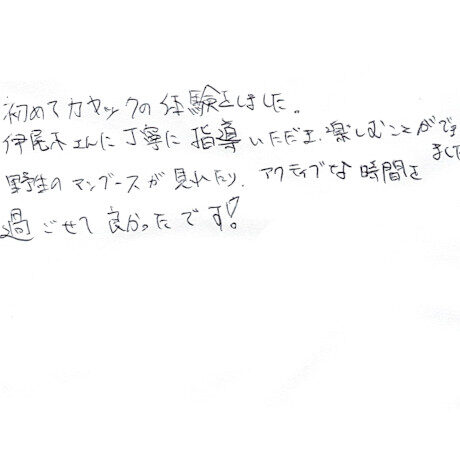 初めてカヤックの体験をしました。
伊尾木さんに丁寧に指導いただき、楽しむことができました
野生のマングースが見れたり、アクティブな時間を
過ごせて良かったです!